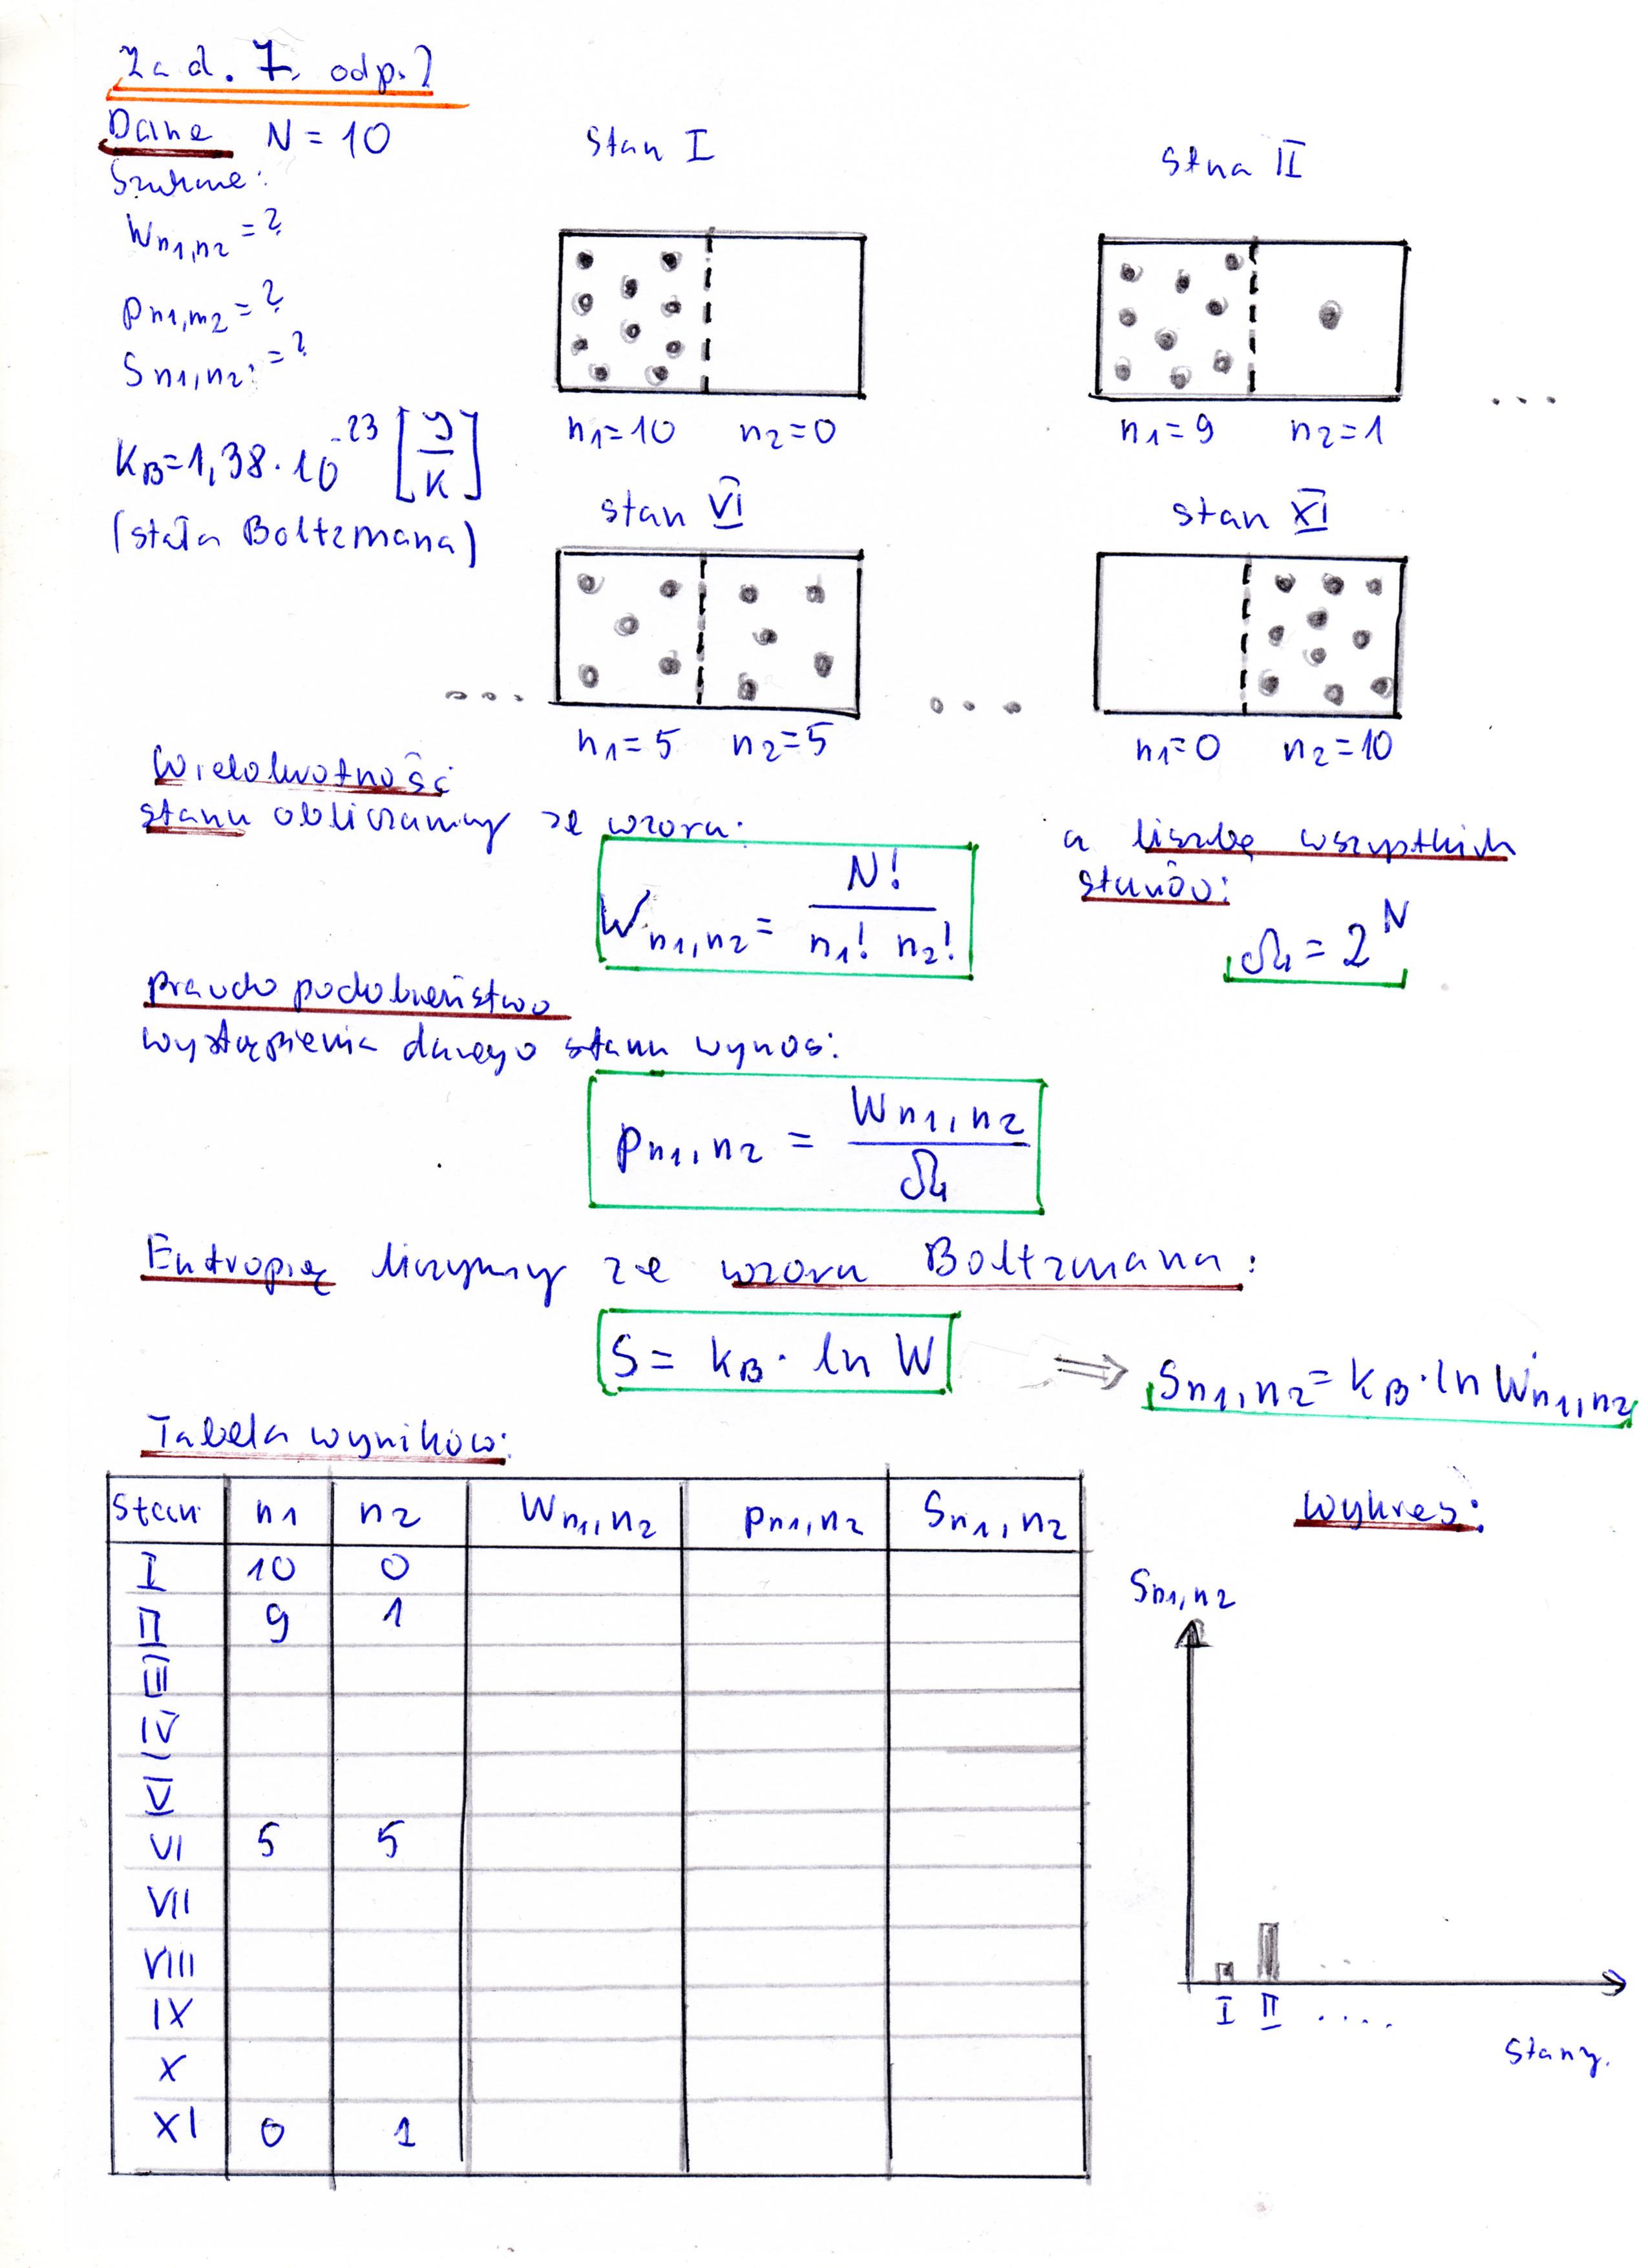 Zad. 7. odp. 2
Dane N = 10
Szukane:
Wn1,n2 = ?
pn1,n2 = ?
Sn1,n2 = ?
kB = 1,38 · 10^-23 [J/K]
(stała Boltzmana)
Stan I
Stna II
n1=10 n2=0
n1=9 n2=1
...
stan VI
stan XI
...
...
n1=5 n2=5
n1=0 n2=10
Wielokrotność
stanu obliczamy ze wzoru:
Wn1,n2 = N! / n1! n2!
a liczbę wszystkich
stanów:
Ω = 2^N
prawdopodobieństwo
wystąpienia danego stanu wynos:
pn1,n2 = Wn1,n2 / Ω
Entropię liczymy ze wzoru Boltzmana:
S = kB · ln W ⇒ Sn1,n2 = kB · ln Wn1,n2
Tabela wyników:
Stan n1 n2 Wn1,n2 pn1,n2 Sn1,n2
I 10 0
II 9 1
III
IV
V
VI 5 5
VII
VIII
IX
X
XI 0 1
Wykres:
Sn1,n2
I II ....
Stany.